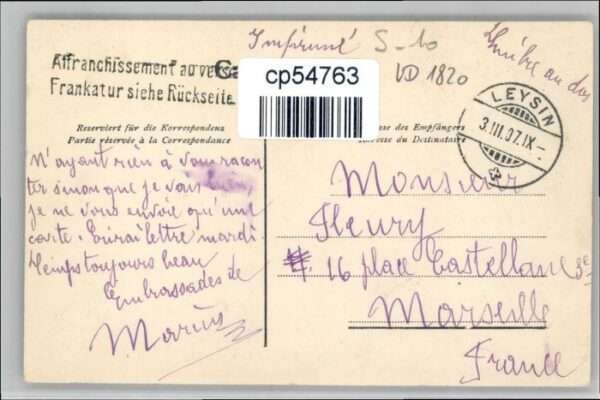 Imprimé S-10
Timbre au dos
Affranchissement au verso
Frankatur siehe Rückseite
cp54763
VD 1820
LEYSIN
3.III.07.IX-
Reserviert für die Korrespondenz
Partie réservée à la Correspondance
se des Empfängers
du Destinataire
N'ayant rien à vous racon
ter sinon que je vais bien,
je ne vous envoie qu'une
carte. Ecrirai lettre mardi.
Temps toujours beau
Embrassades de
Marius
Monsieur
Fleury
16 place Castellane 3e
Marseille
France